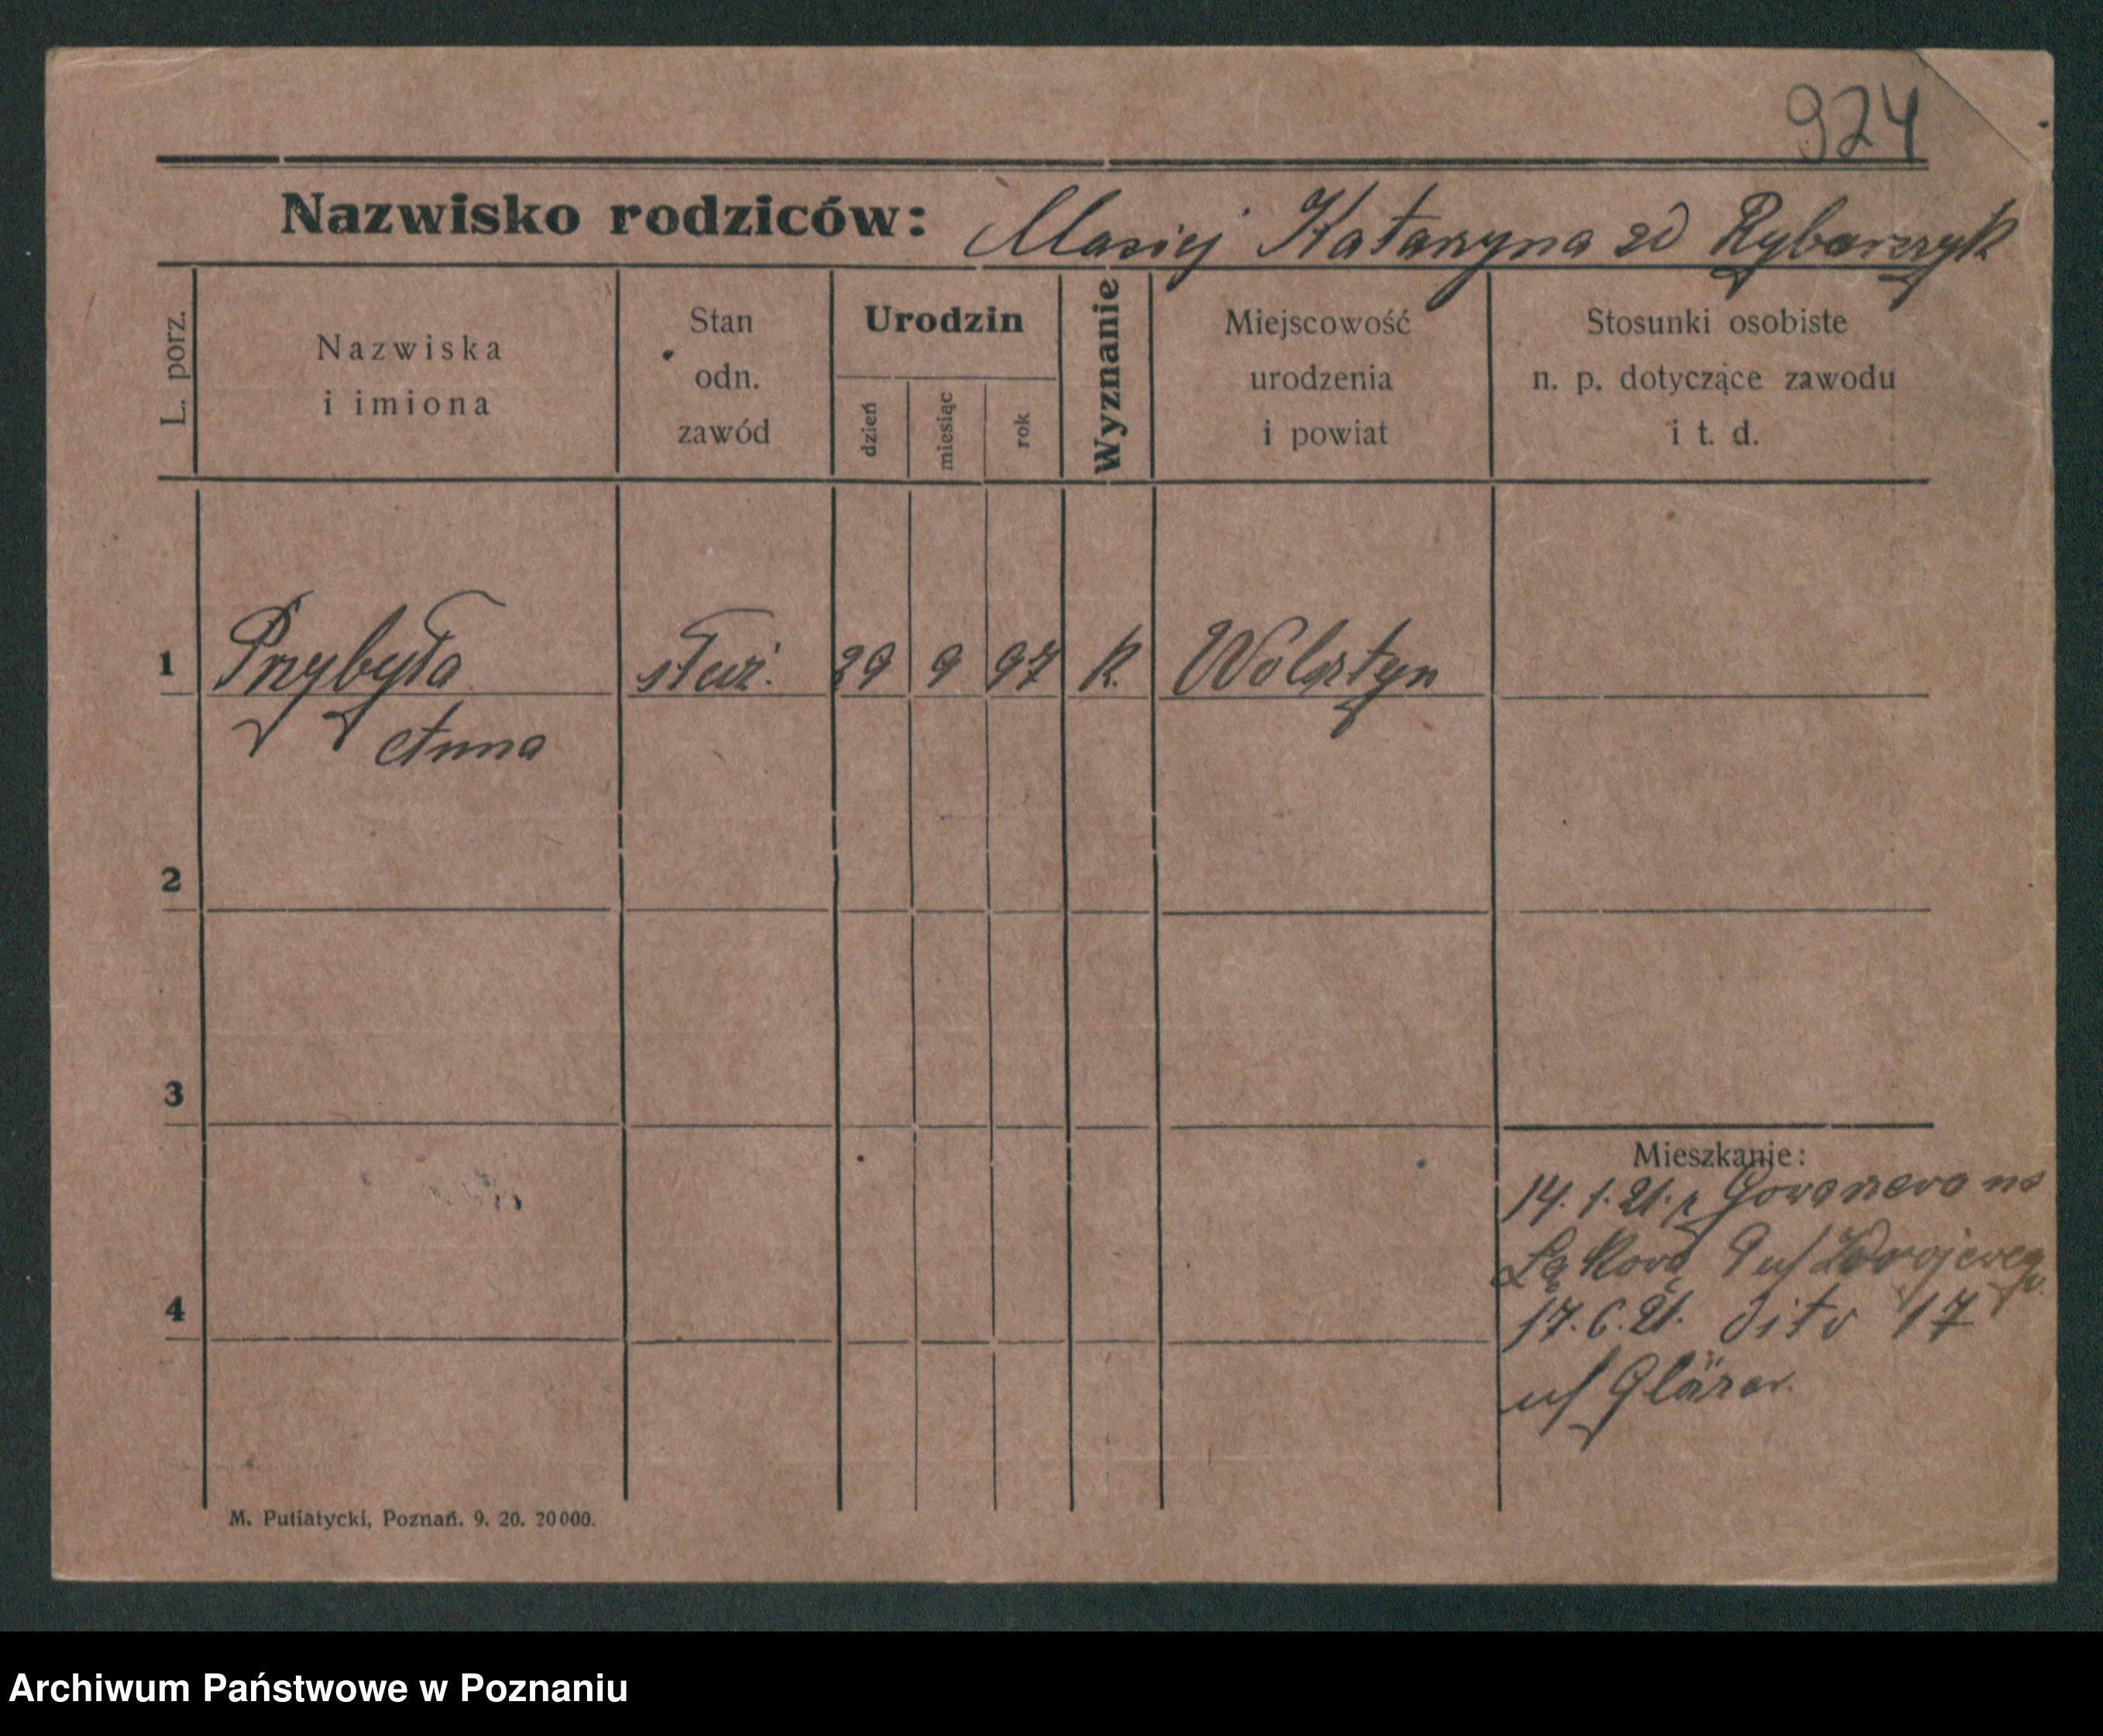 924
Nazwisko rodziców: Maciej Katarzyna zd Rybarczyk
L. porz.
Nazwiska
i imiona
Stan
odn.
zawód
Urodzin
dzień
miesiąc
rok
Wyznanie
Miejscowość
urodzenia
i powiat
Stosunki osobiste
n. p. dotyczące zawodu
i t. d.
1 Przybyła służ. 29 9 97 k. Wolsztyn
Anna
2
3
Mieszkanie:
14. 1. 21. z na
Łąkową 9 u/
4
17. 6. 21. dito 17
u/ Gläser
M. Putiatycki, Poznań. 9. 20. 20000.
Archiwum Państwowe w Poznaniu